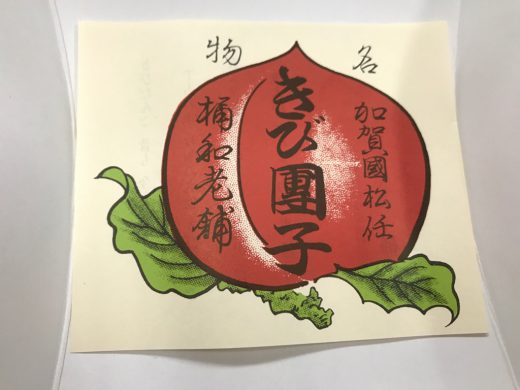 名物
加賀國松任
きび團子
桶和老舗